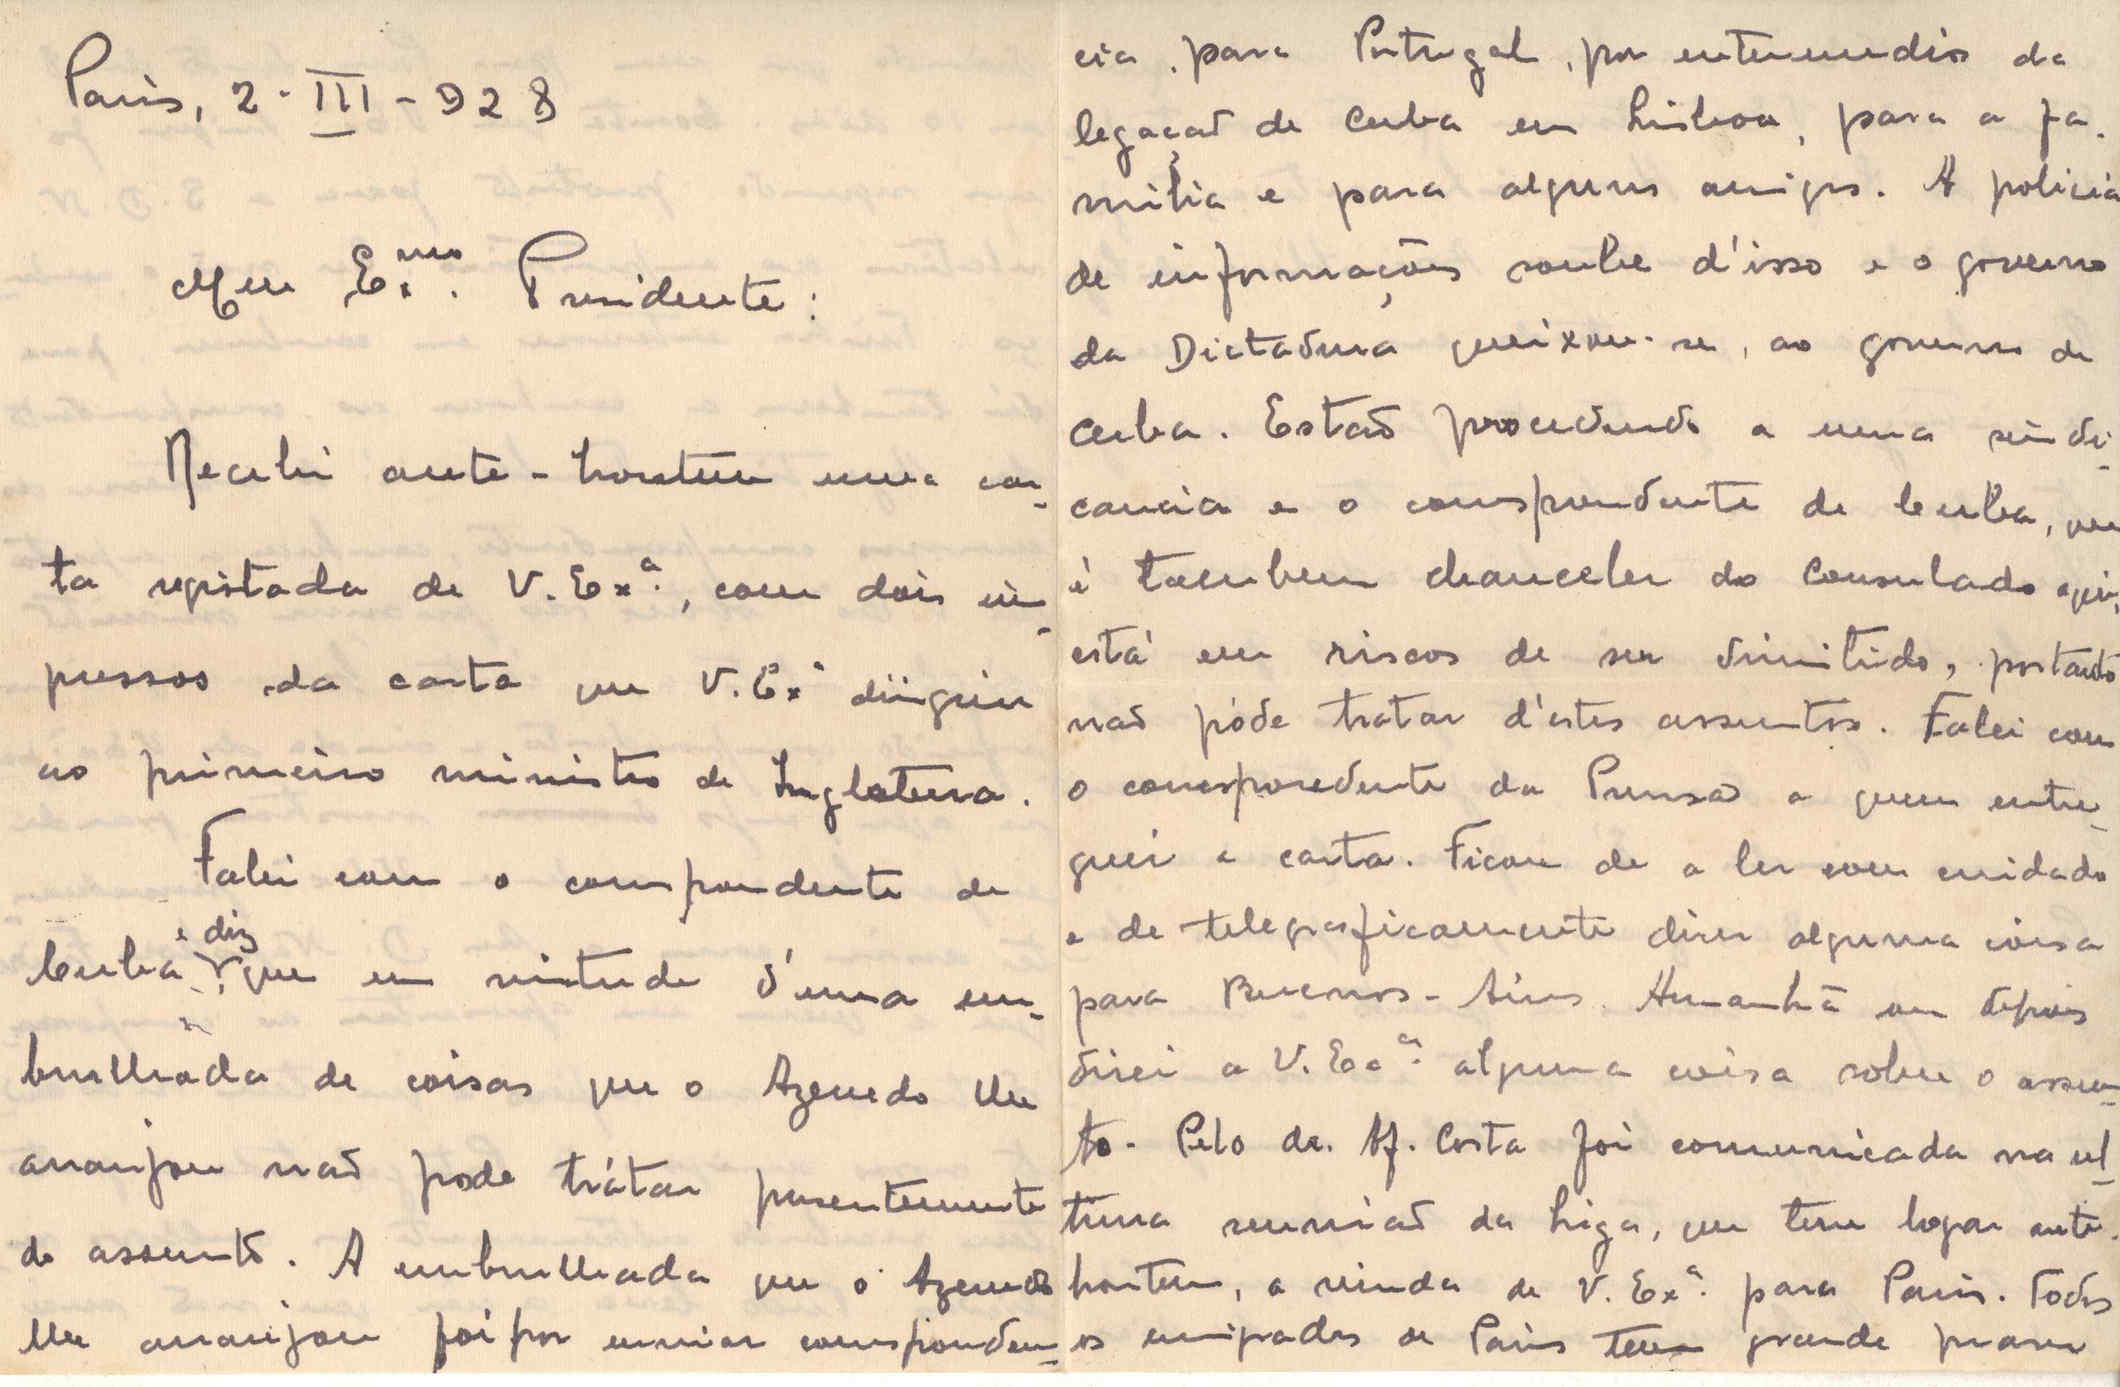 Paris, 2-III-928
Meu Exmo. Presidente:
Recebi ante-hontem uma car-
ta registada de V. Exª., com dois im-
pressos da carta que V. Exª dirigiu
ao primeiro ministro de Inglaterra.
Falei com o correspondente de
Cuba e diz que em virtude d'uma em-
brulhada de coisas que o Azevedo lhe
arranjou naõ pode trátar presentemente
do assunto. A embrulhada que o Azevedo
lhe arranjou foi por enviar corresponden-
cia, para Portugal, por entermedio da
legaçaõ de Cuba em Lisboa, para a fa-
milia e para alguns amigos. A policia
de informações soube d'isso e o governo
da Dictadura queixou-se, ao governo de
Cuba. Estaõ procedendo a uma sindi-
cancia e o correspondente de Cuba, que
é tambem chanceler do Consulado aqui,
está em riscos de ser dimitido, portanto
naõ póde tratar d'estes assuntos. Falei com
o correspondente da Prensa a quem entre-
guei a carta. Ficou de a ler com cuidado
e de telegraficamente dizer alguma coisa
para Buenos-Aires. Amanhã ou depois
direi a V. Exª. alguma coisa sobre o assun-
to. Pelo dr. Af. Costa foi comunicada na ul-
tima reuniaõ da Liga, que teve logar ante-
hontem, a vinda de V. Exª. para Paris. Todos
os emigrados de Paris tem grande prazer